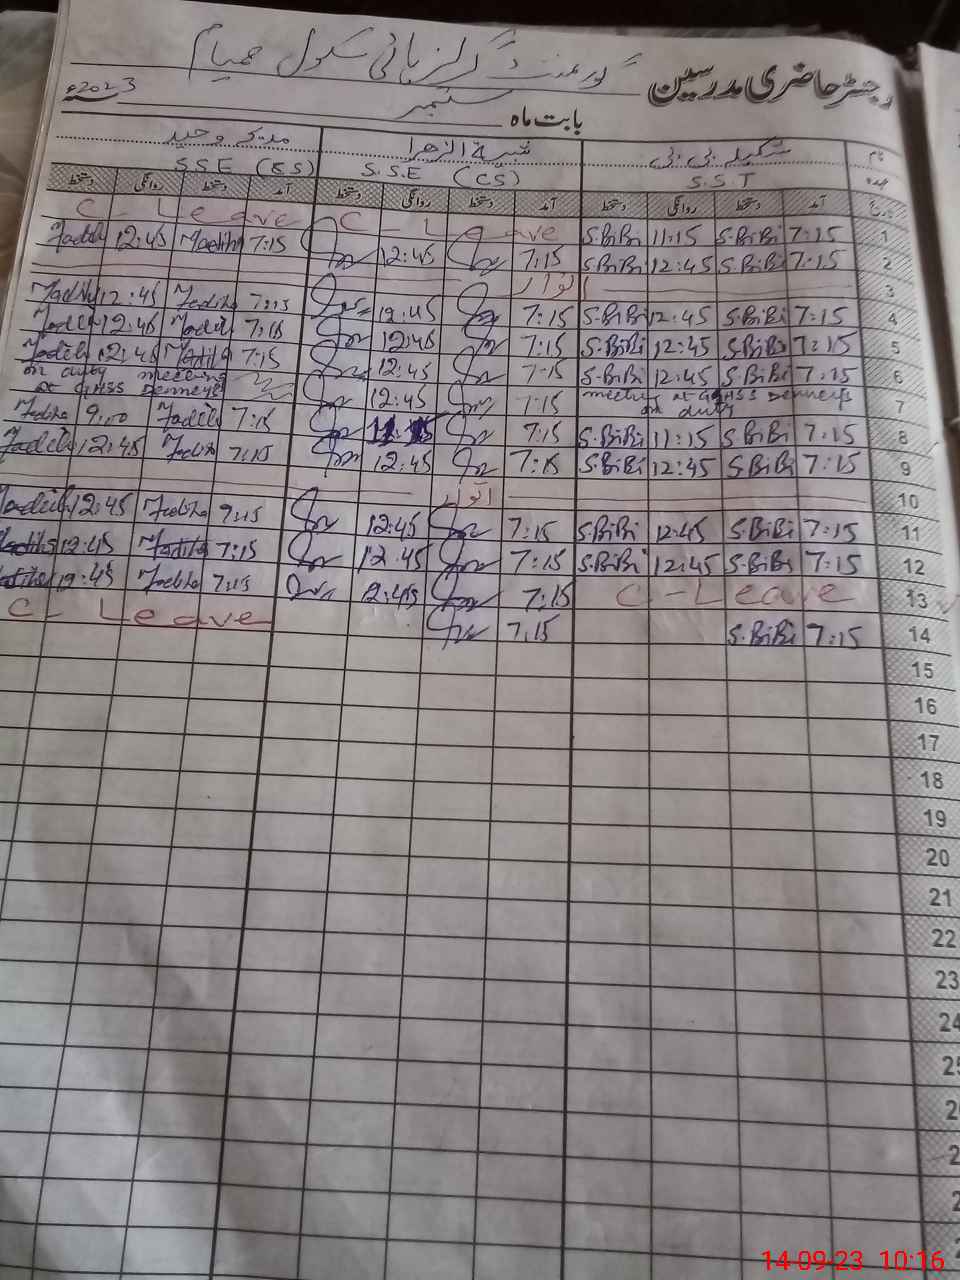 رجسٹر حاضری مدرسین گورنمنٹ گرلز ہائی سکول
بابت ماہ ستمبر 2023ء
نام شکیلہ بی بی الزھرا مدیحہ وحید
عہدہ S.S.T S.S.E (CS) S.S.E
تاریخ آمد دستخط روانگی دستخط آمد دستخط روانگی دستخط آمد دستخط روانگی دستخط
1 7:15 S.BiBi 11:15 S.BiBi C - Leave C - Leave
2 7:15 S.BiBi 12:45 S.BiBi 7:15 12:45 7:15 Madiha 12:45
3 اتوار
4 7:15 S.BiBi 12:45 S.BiBi 7:15 12:45 7:15 Madiha 12:45
5 7:15 S.BiBi 12:45 S.BiBi 7:15 12:45 7:15 12:45
6 7:15 S.BiBi 12:45 S.BiBi 7:15 12:45 7:15 Madiha 12:45
7 meeting at GGHSS on duty 7:15 12:45 on duty meeting at GHSS
8 7:15 S.BiBi 11:15 S.BiBi 7:15 7:15 9:00
9 7:15 S.BiBi 12:45 S.BiBi 7:15 12:45 7:15 12:45
10 اتوار
11 7:15 S.BiBi 12:45 S.BiBi 7:15 12:45 Madiha 12:45
12 7:15 S.BiBi 12:45 S.BiBi 7:15 12:45 7:15 Madiha 12:45
13 C - Leave 7:15 2:45 7:15 Madiha 12:45
14 7:15 S.BiBi 7:15 C - Leave
15
16
17
18
19
20
21
22
23
24
14-09-23 10:16